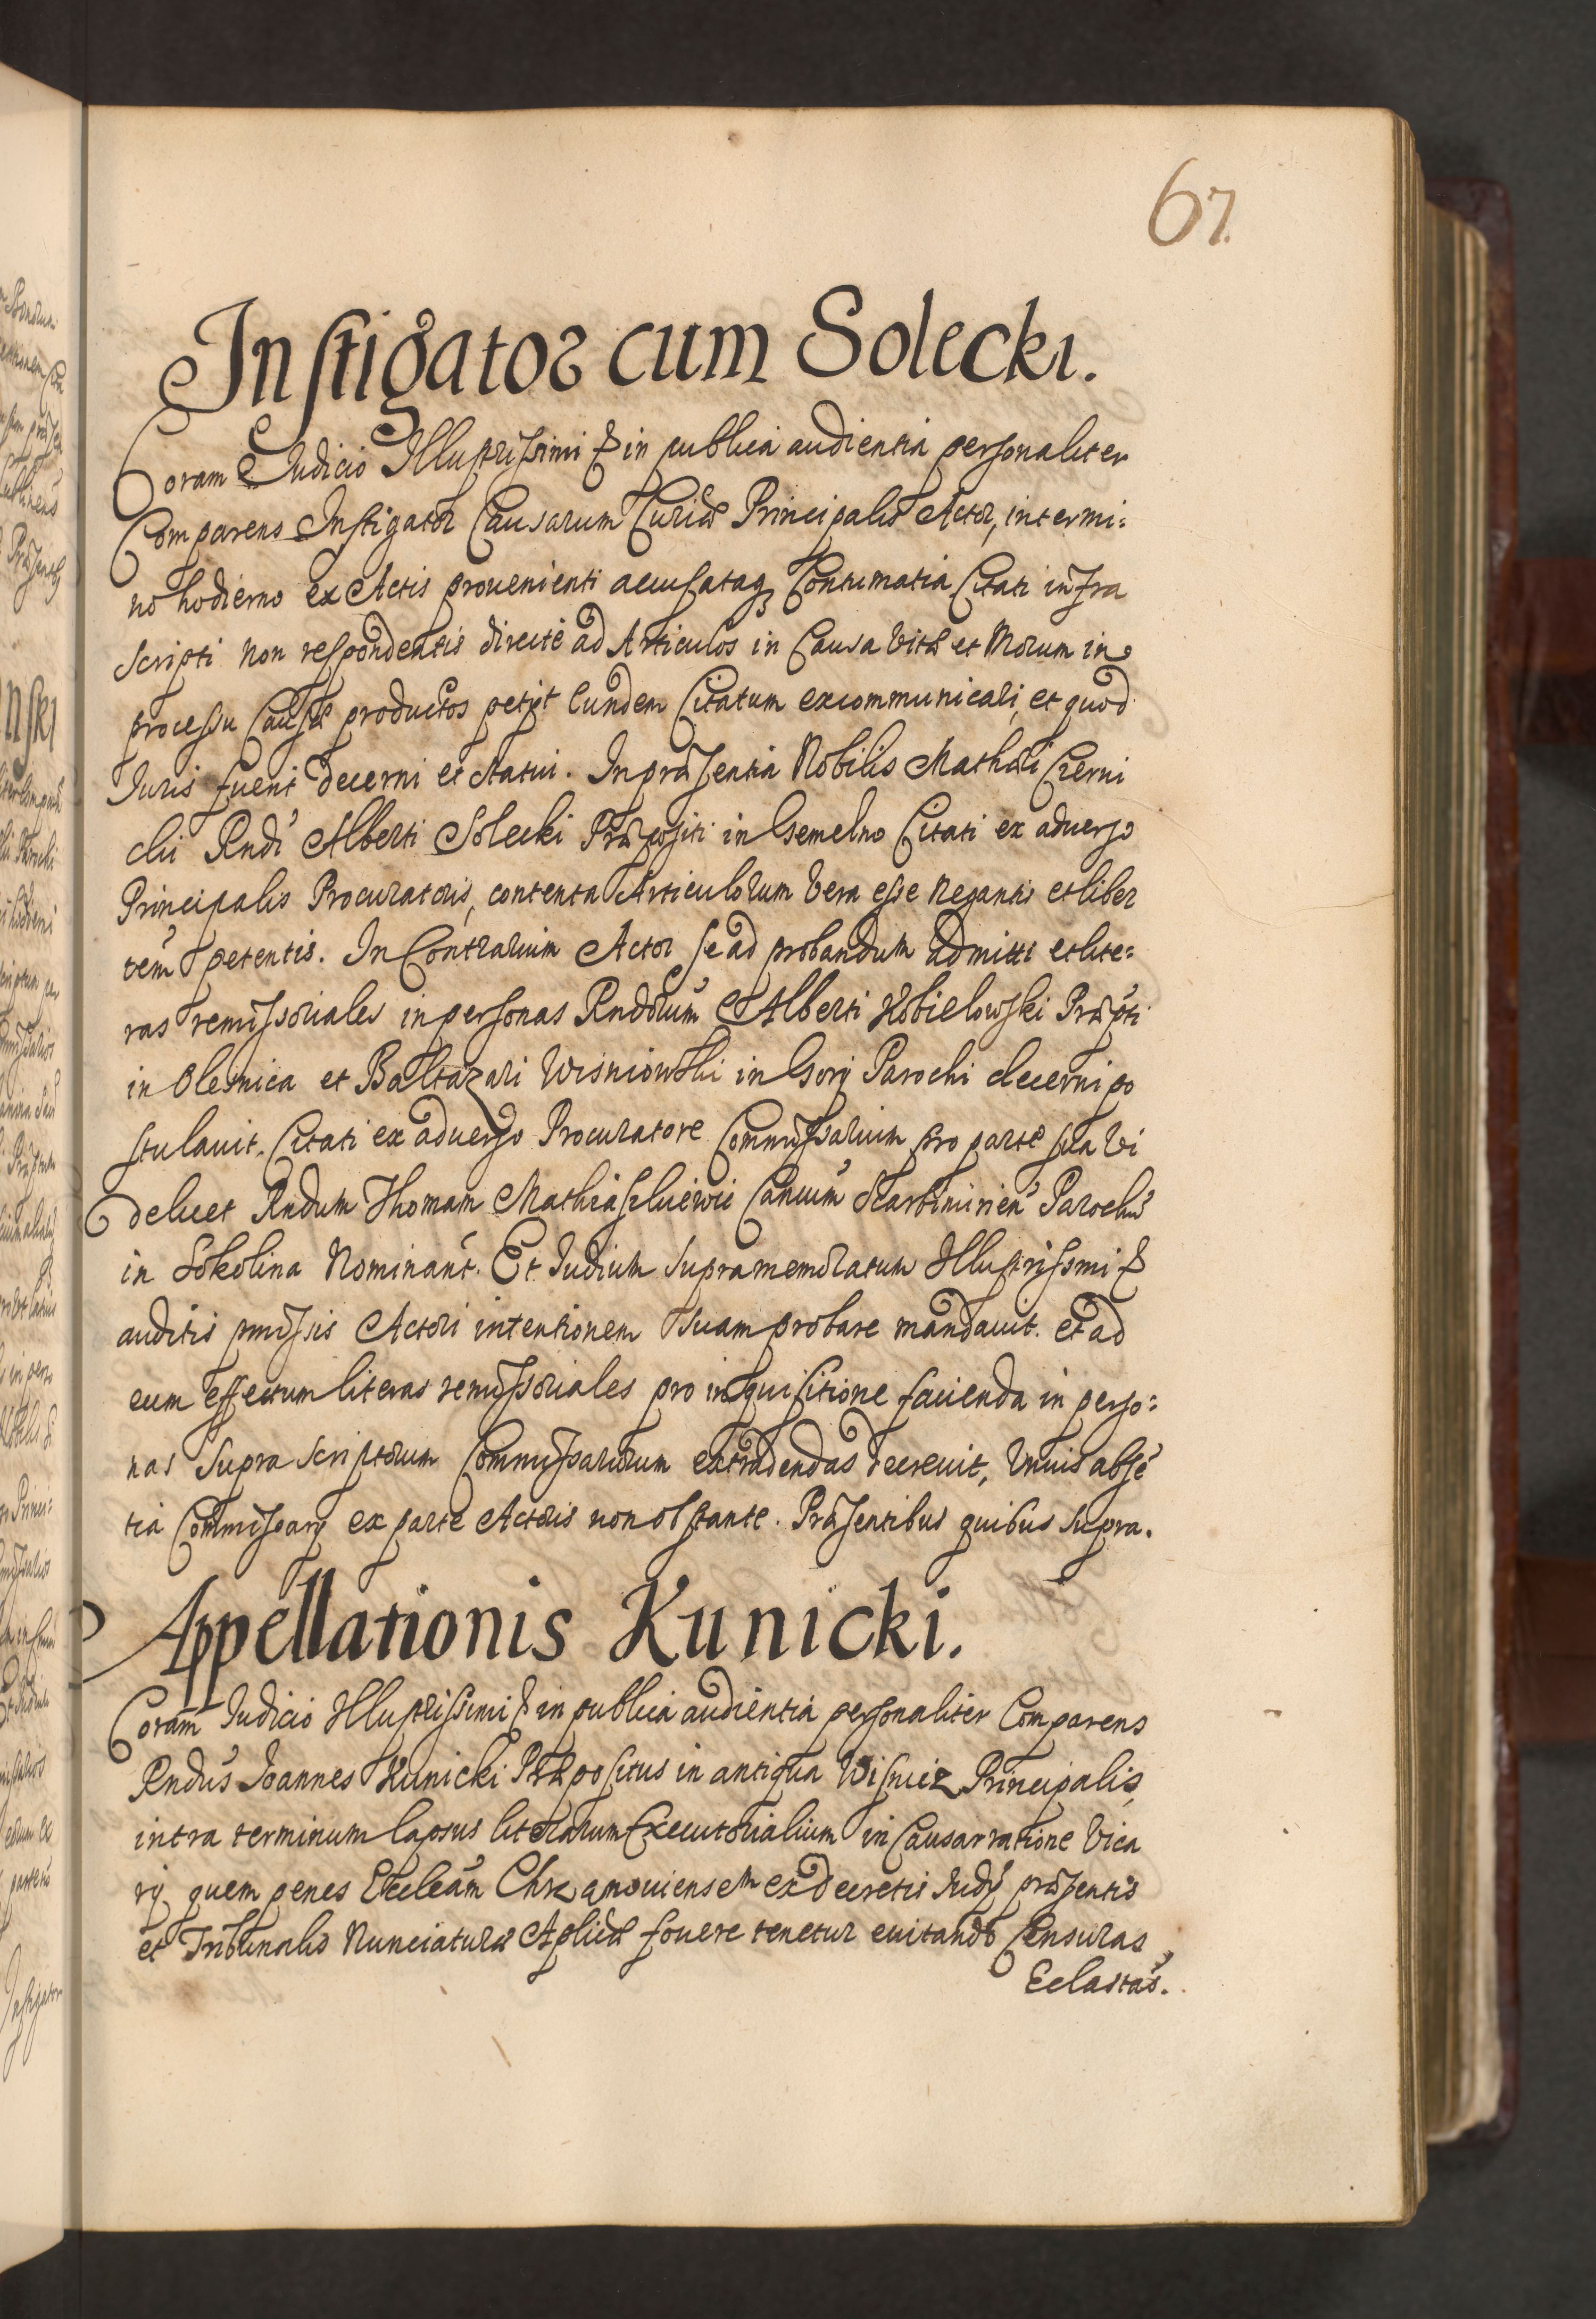 67.
Instigator cum Solecki.
Coram Iudicio Illustrissimi & in publica audientia personaliter
Comparens Instigator Causarum Curiæ Principalis Actor, in termi:
no hodierno ex Actis provenienti accusataq3 Contumatia Citati infra
scripti non respondentis directe ad Articulos in Causa Vitæ et Morum in
processu Causæ productos petijt Eundem Citatum excommunicari, et quod
Iuris fuerit decerni et statui. In præsentia Nobilis Mathæi Czerni
chi Rndi Alberti Solecki Præpositi in Gemelno Citati ex adverso
Principalis Procuratoris, contenta Articulorum Vera esse negantis et liber
tem petentis. In Contrarium Actor se ad probandum admitti et lite:
ras remissoriales in personas Rndorum Alberti Kobielowski Præpti
in Olesnica et Baltazari Wisniowski in Gory Parochi decerni po
stulavit. Citati ex adverso Procuratore Commissarium pro parte sua Vi
delicet Rndum Thomam Mathiaszkiewic Cancum Skarbimirien Parochu
in Sokolina Nominant. Et Iudicium supramemoratum Illustrissmi &
auditis pmissis Actori intentionem suam probare mandavit. et ad
eum effectum literas remissoriales pro inquisitione facienda in perso:
nas supra scriptorum Commissariorum extradendas decrevit, Unius absē
tia Commissarij ex parte Actoris non obstante. Præsentibus quibus supra.
Appellationis Kunicki.
Coram Iudicio Illustrissimi & in publica audientia personaliter Comparens
Rndus Ioannes Kunicki Præpositus in antiqua Wisnicz Principalis,
intra terminum lapsus literarum Executorialium in Causa ratione Vica
rij quem penes Eccleam Chrzanoviensem ex decretis Iudij præsentis
et Tribunalis Nunciaturæ Aplicæ fovere tenetur evitando Censuras
Ecclasticas.